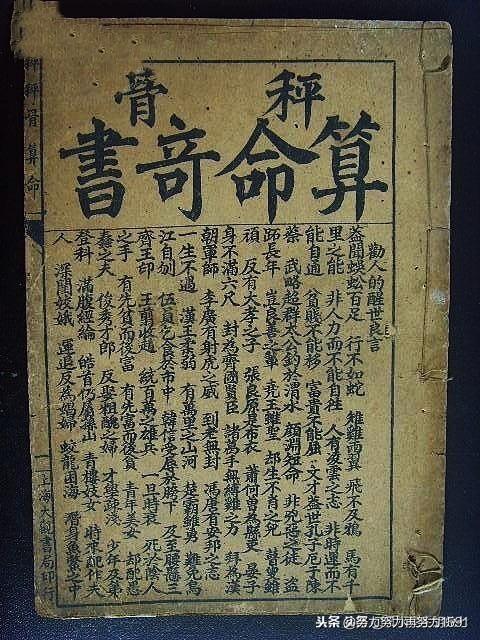 秤骨
算命竒書
勸人的醒世良言
蓋聞蜈蚣百足 行不如蛇 雄雞両翼 飛不及鴉 馬有千
里之能 非人力而不能自往 人有凌雲之志 非時運而不
能自通 貧賤不能移 富貴不能屈 文才盖世孔子厄于陳
蔡 武略超群太公釣於渭水 顏淵短命 非兇惡之徒 盜
跖長年 豈良善之輩 堯王雖聖 却生不肖之兒 瞽叟雖
頑 反有大孝之子 張良原是布衣 蕭何曾為縣吏 晏子
身不滿六尺 封為齊國賢臣 諸葛手無縛雞之力 拜為漢
朝軍師 李廣有射虎之威 到老無封 馮唐有安邦之志
一生不遇 漢王柔弱 有萬里之山河 楚霸雖勇 難免烏
江自刎 伍員乞食於市中 韓信受辱於胯下 及至腰懸三
齊王印 王翦收趙 統百萬之雄兵 一旦時衰 死於陰人
之手 有先貧而後富 有先富而後貧 青年美女 却配愚
蠢之夫 俊秀才郎 反娶粗醜之婦 才學疎淺 少年及第
登科 滿腹經綸 皓首仍屬孫山 青樓妓女 時來配作夫
人 深閨姣娥 運退反為娼婦 蛟龍困海 潛身魚鱉之中
秤骨算命
上海大觀書局印行
头条 @努力努力再努力1591